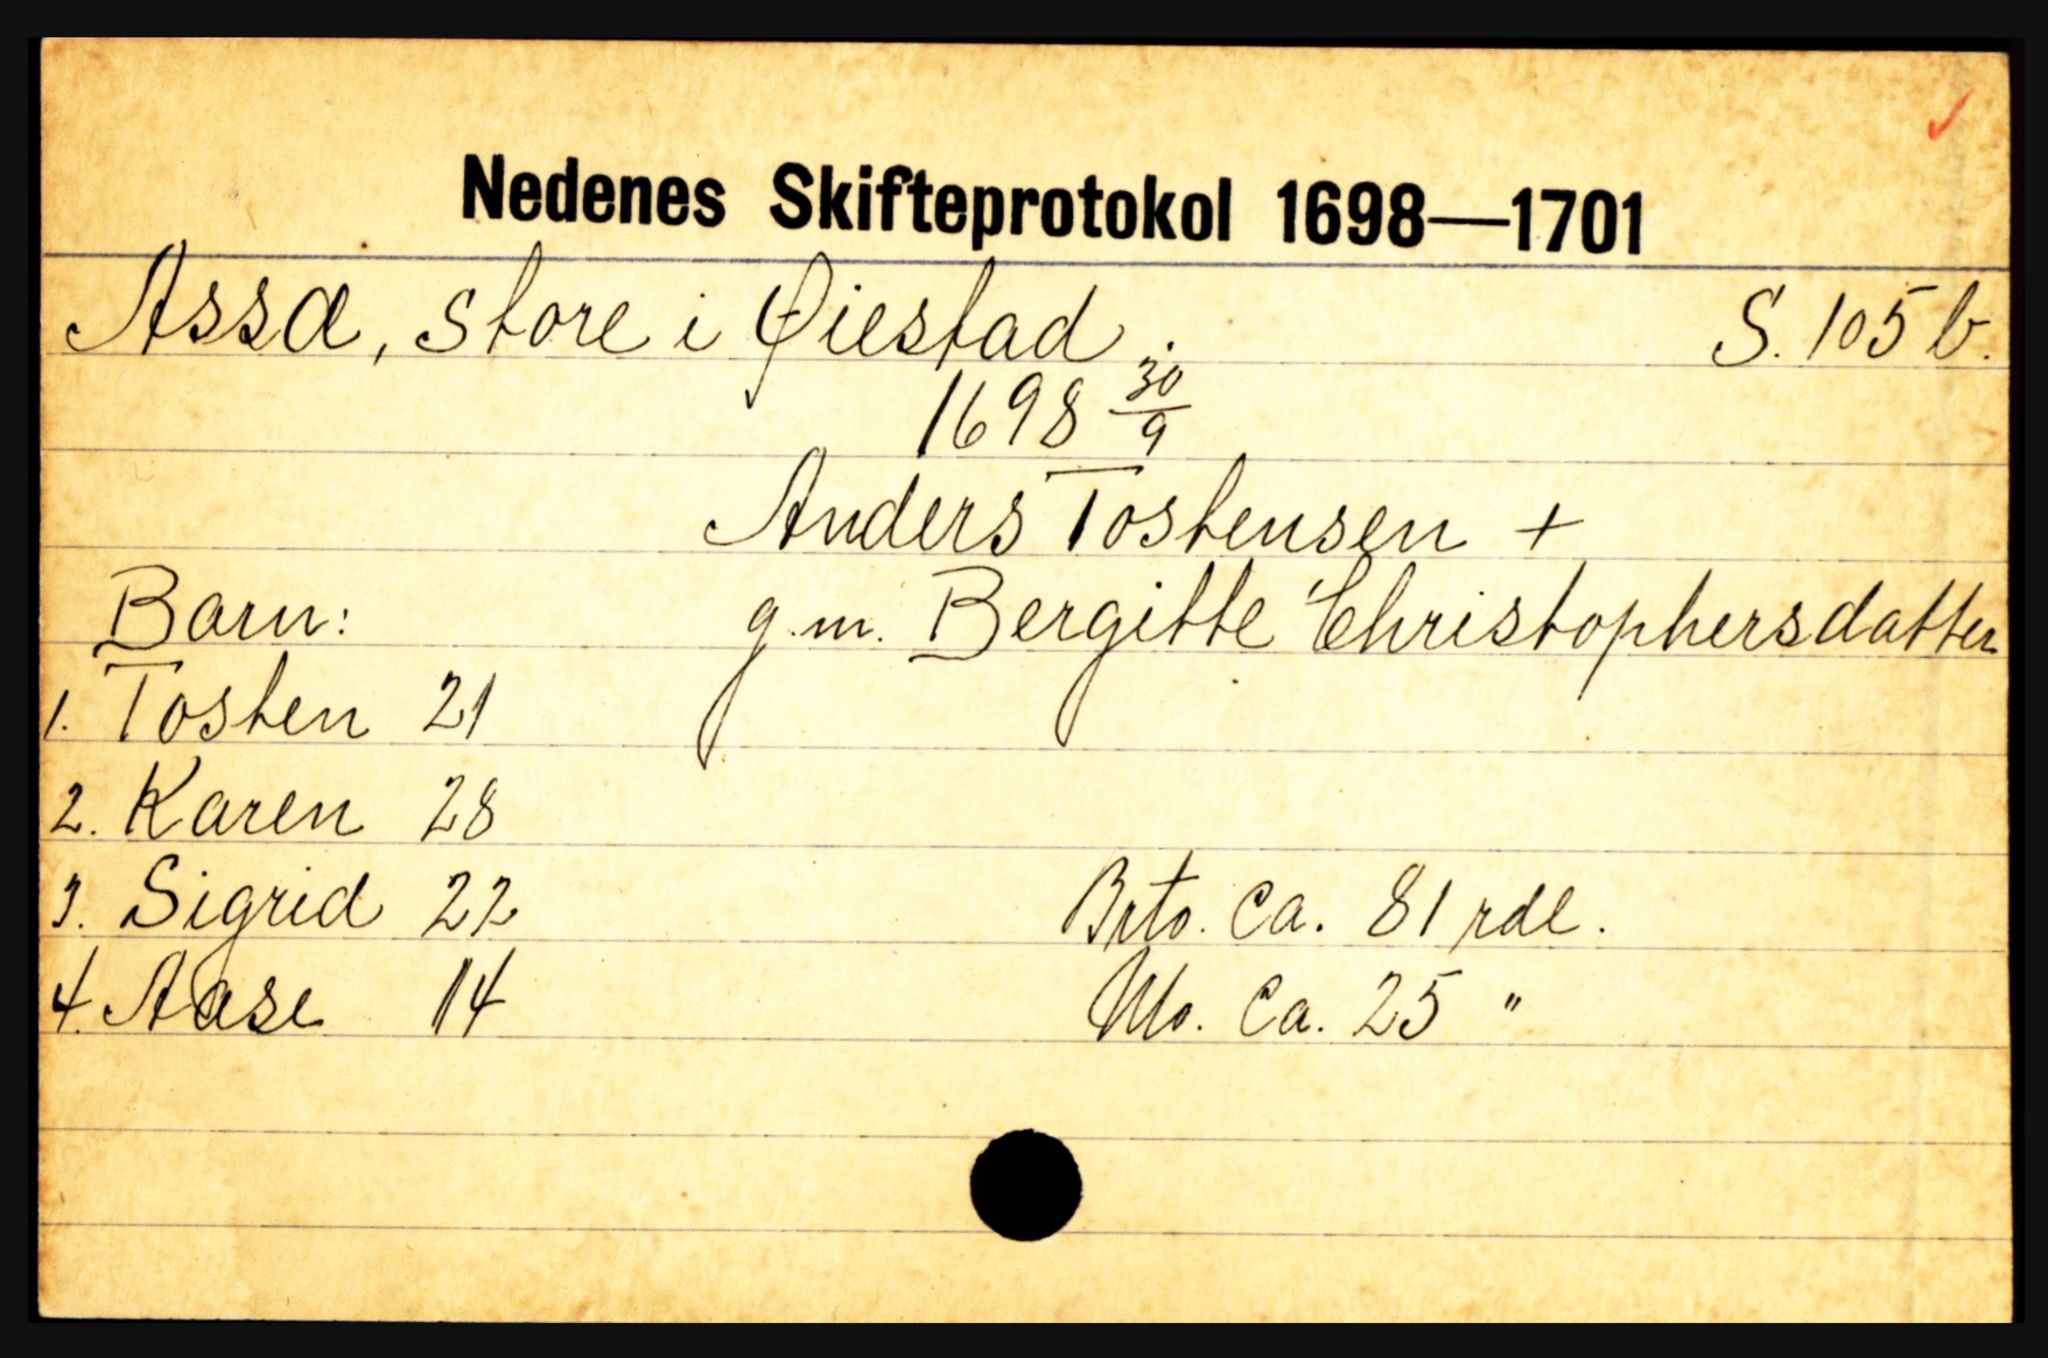 Nedenes Skifteprotokol 1698—1701
Assæ, store i Øiestad. S. 105 b.
1698 30/9
Anders Tostensen +
Barn: g.m. Bergitte Christophersdatter
1. Tosten 21
2. Karen 28
3. Sigrid 22 Brto. ca. 81 rdl.
4. Aase 14 Nto. ca. 25 "